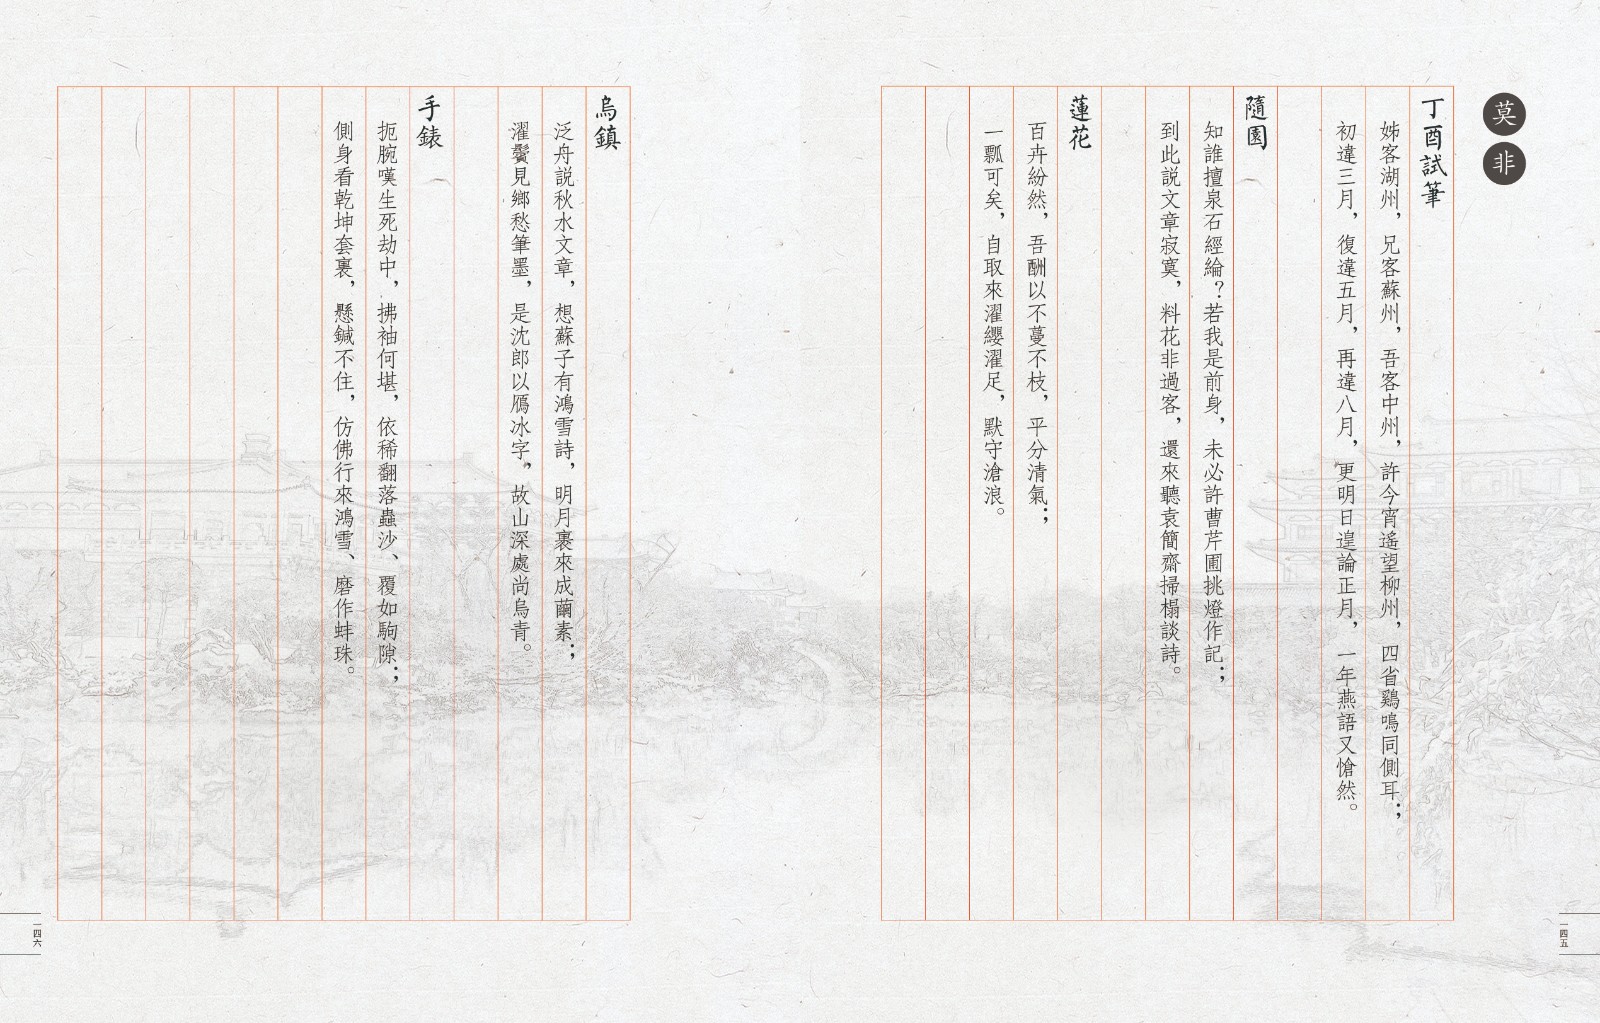 莫非
丁酉試筆
姊客湖州，兄客蘇州，吾客中州，許今宵遙望柳州，四省鷄鳴同側耳；
初違三月，復違五月，再違八月，更明日遑論正月，一年燕語又愴然。
隨園
知誰擅泉石經綸？若我是前身，未必許曹芹圃挑燈作記；
到此説文章寂寞，料花非過客，還來聽袁簡齋掃榻談詩。
蓮花
百卉紛然，吾酬以不蔓不枝，平分清氣；
一瓢可矣，自取來濯纓濯足，默守滄浪。
一四五
烏鎮
泛舟説秋水文章，想蘇子有鴻雪詩，明月裹來成繭素；
濯鬢見鄉愁筆墨，是沈郎以鴈冰字，故山深處尚烏青。
手錶
扼腕嘆生死劫中，拂袖何堪，依稀翻落蟲沙、覆如駒隙；
側身看乾坤套裏，懸鍼不住，仿佛行來鴻雪、磨作蚌珠。
一四六